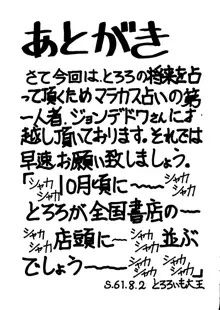 あとがき
さて今回は、とろろの将来を占
って頂くためマラカス占いの第
一人者、ジョンデドワさんにお
越し頂いております。それでは
早速お願い致しましょう。
「シャカシャカ10月頃に〜〜シャカシャカ〜
とろろが全国書店の〜
シャカシャカ店頭に〜シャカシャカ並ぶシャカシャカ
でしょう〜シャカシャカ〜シャカシャカ〜」
S.61.8.2 とろろいも大王